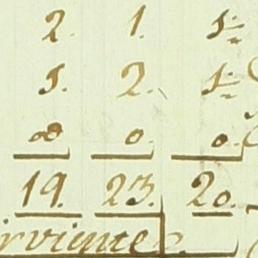 2. 1. 1=
5. 2. 1=
0 0. 0.
19. 23. 20.
irviente